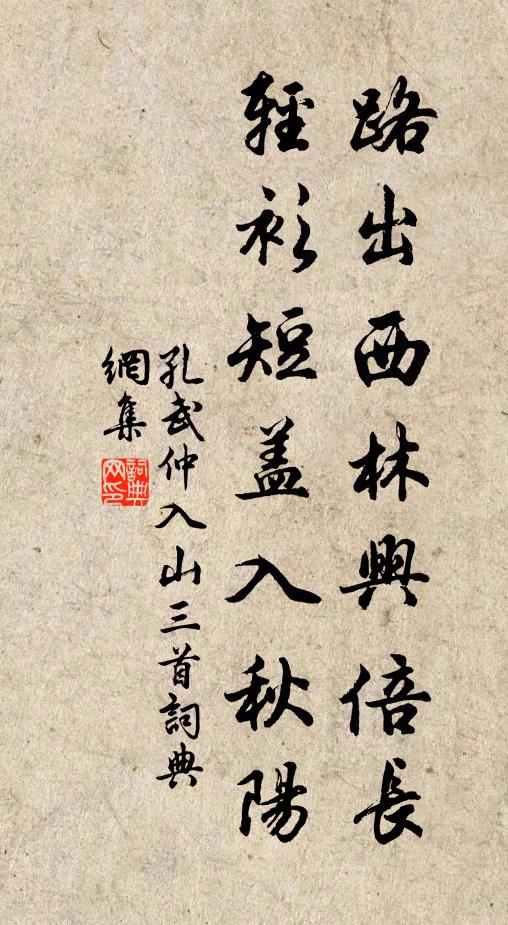 路出西林興倍長
輕衫短盖入秋陽
孔武仲入山三首詞典
網集
詞典
网印